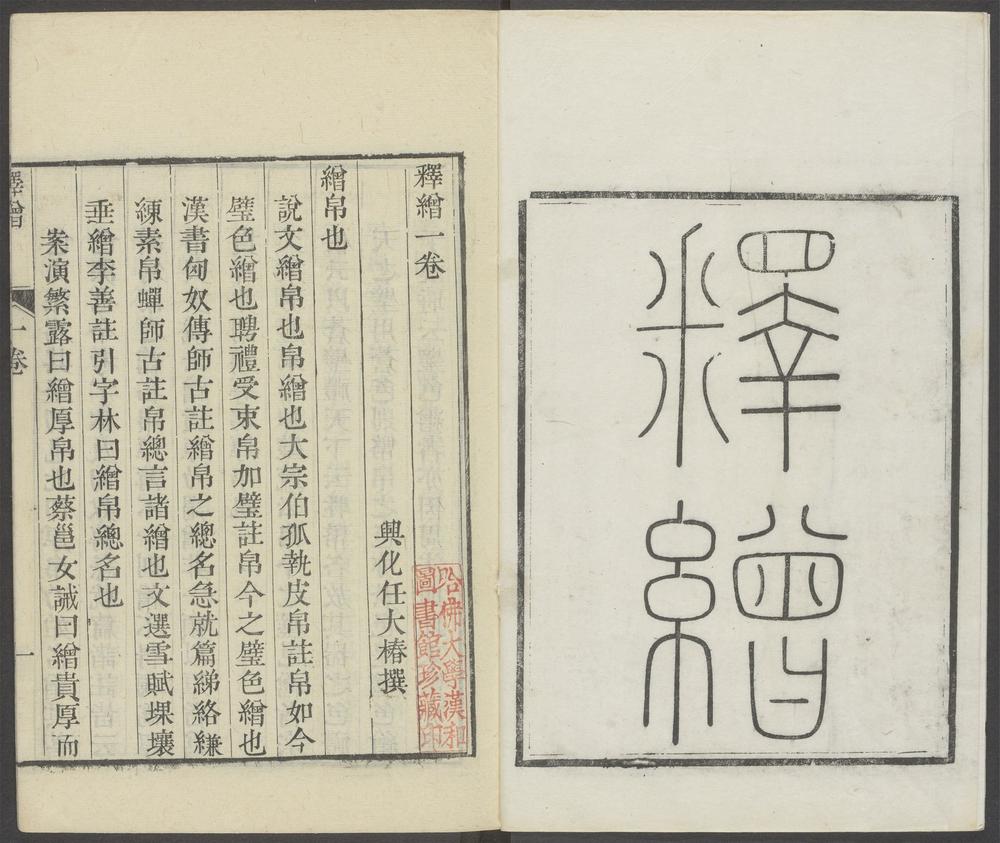 釋繒
釋繒一卷
興化任大椿撰
繒帛也
說文繒帛也帛繒也大宗伯孤執皮帛註帛如今
璧色繒也聘禮受束帛加璧註帛今之璧色繒也
漢書匈奴傳師古註繒帛之總名急就篇綈絡縑
練素帛蟬師古註帛總言諸繒也文選雪賦堁壤
垂繒李善註引字林曰繒帛總名也
案演繁露曰繒厚帛也蔡邕女誡曰繒貴厚而
釋繒
一卷
一
哈佛大學漢和
圖書館珍藏印